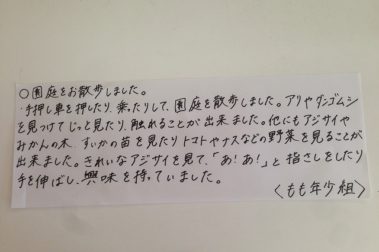 ○園庭をお散歩しました。
・手押し車を押したり、乗ったりして、園庭を散歩しました。アリやダンゴムシ
を見つけてじっと見たり、触れることが出来ました。他にもアジサイや
みかんの木、すいかの苗を見たりトマトやナスなどの野菜を見ることが
出来ました。きれいなアジサイを見て、「あ!あ!」と指さしをしたり
手を伸ばし、興味を持っていました。
〈もも年少組〉